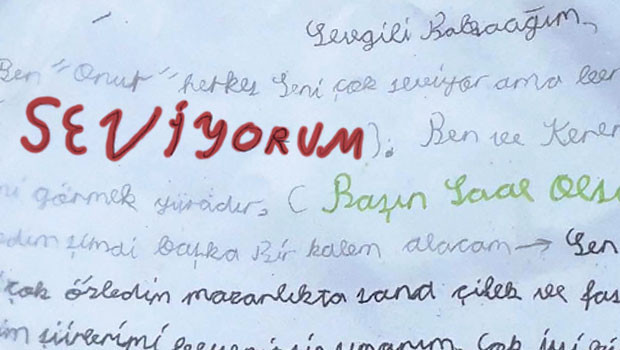 Sevgili Babacağım,
Ben "Onur" herkes seni çok seviyor ama ben
SEVİYORUM). Ben ve Kerem
görmek (Başın Saal Olsu
şimdi başka bir kalem alacam → Sen
çok özledim mazarlıkta sana çilek ve fas
şiirlerimi umarım. Çok iyi bi